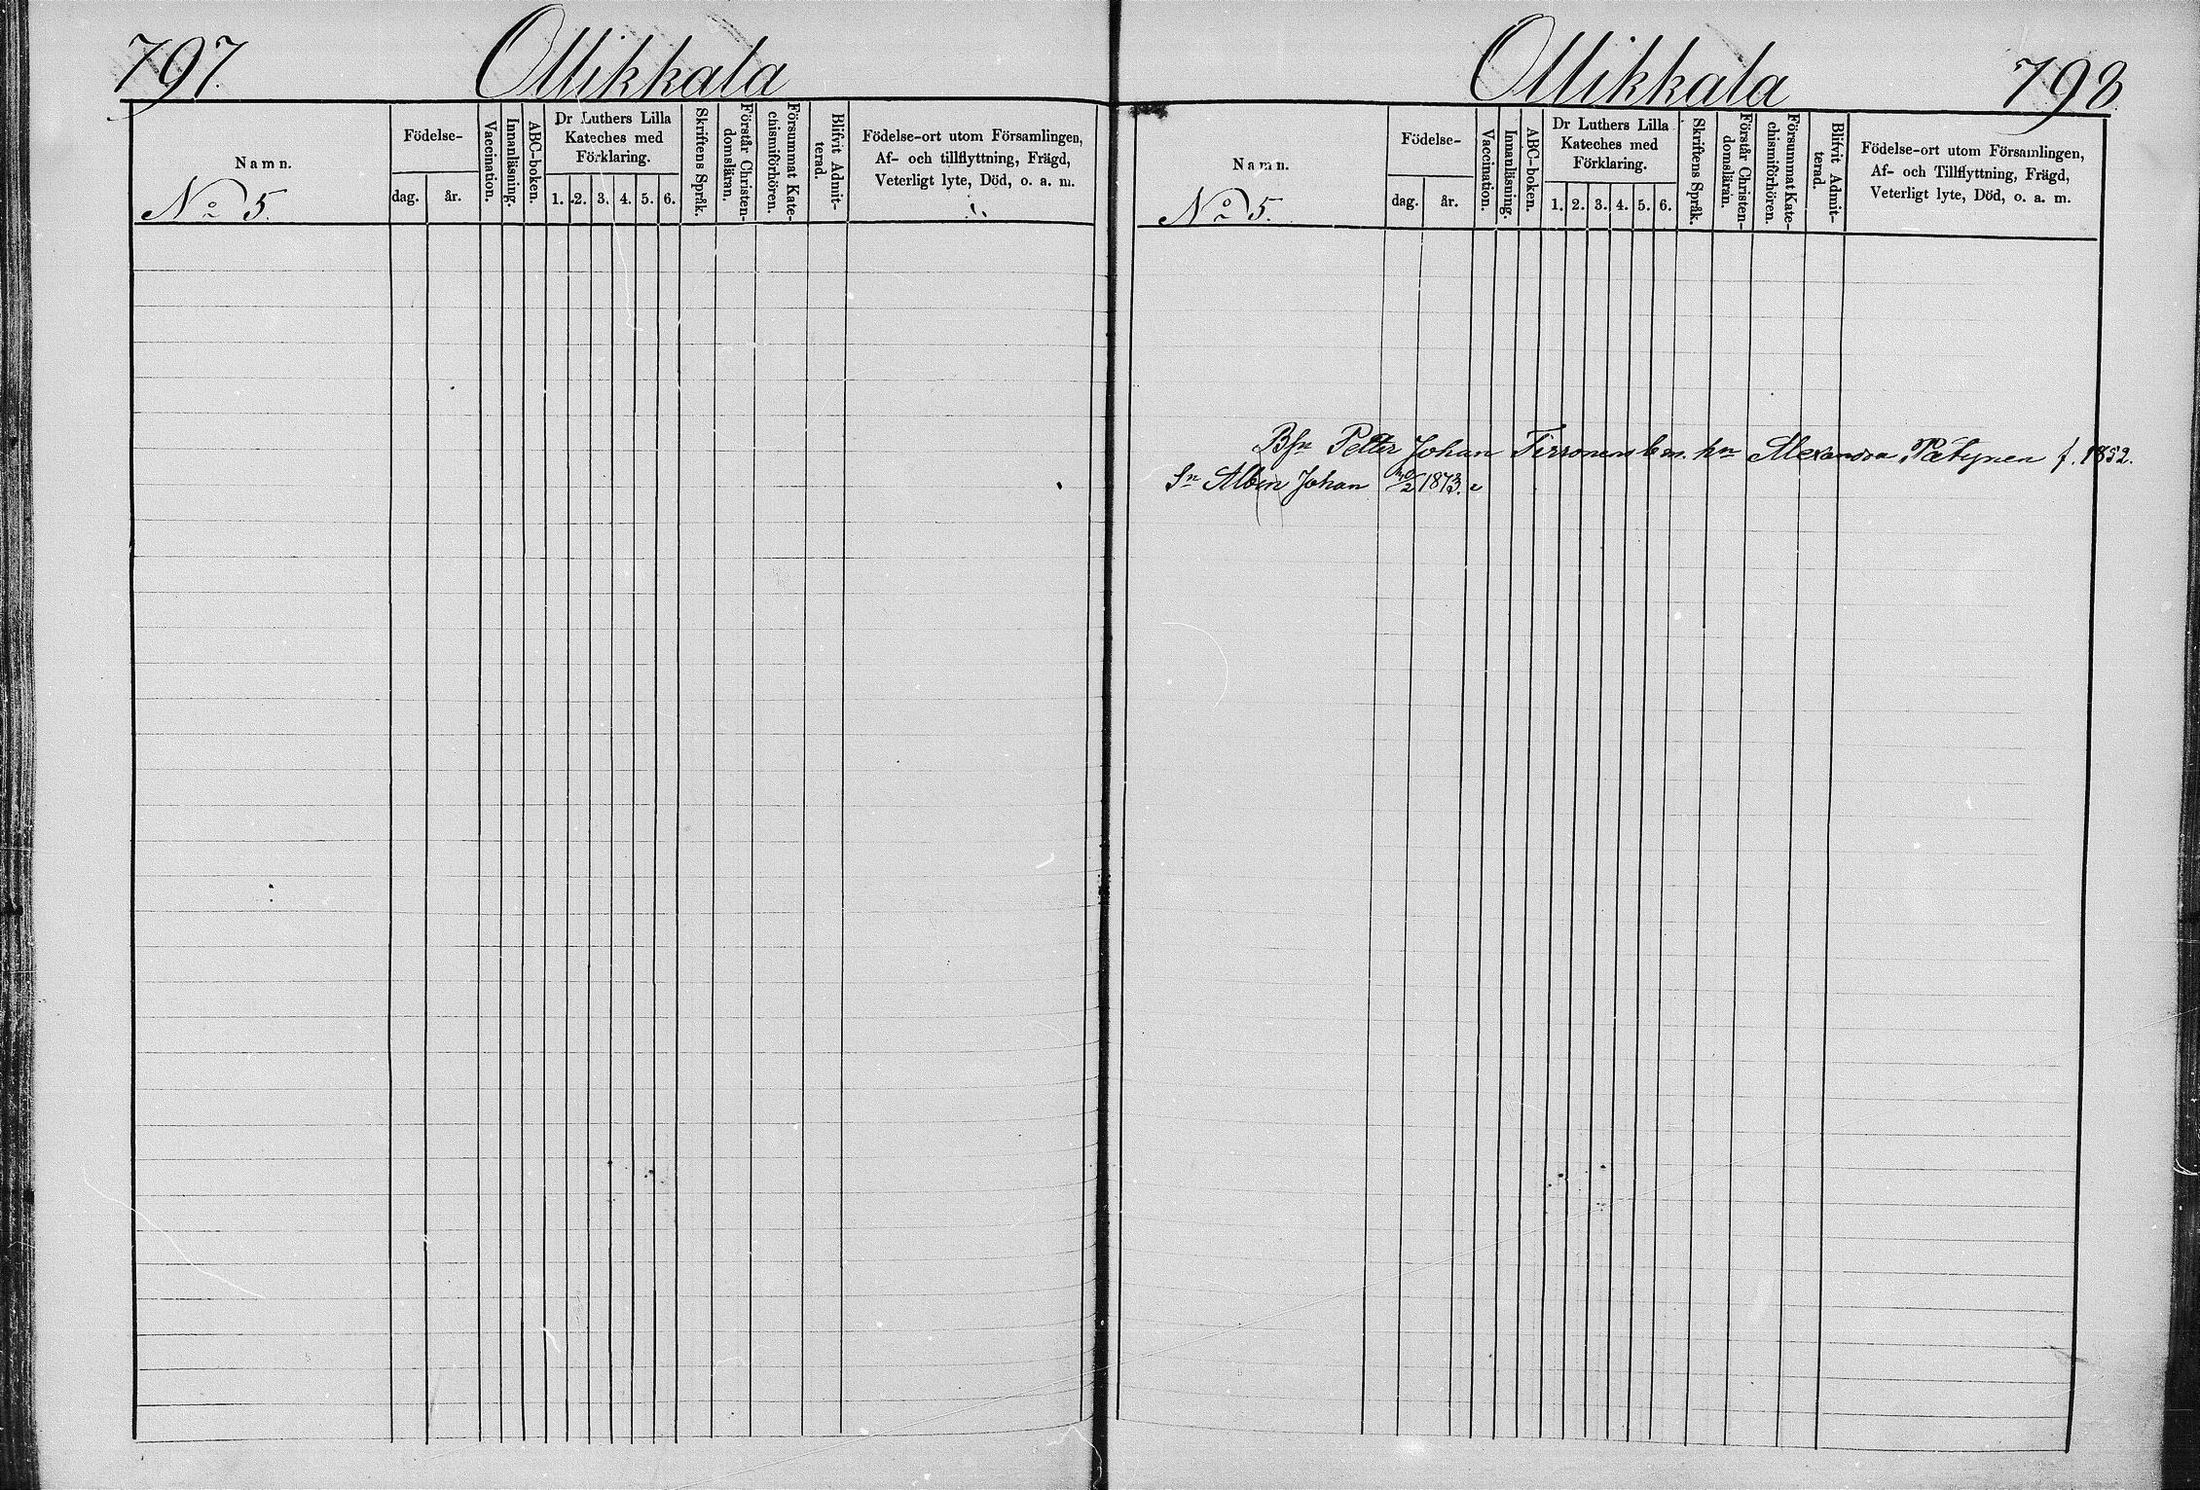 797. Ollikkala
Namn.
No 5.
Födelse-
dag. år.
Vaccination.
Innanläsning.
ABC-boken.
Dr Luthers Lilla
Kateches med
Förklaring.
1. 2. 3. 4. 5. 6.
Skriftens Språk.
Förstår Christen-
domsläran.
Försummat Kate-
chismiförhören.
Blifvit Admit-
terad.
Födelse-ort utom Församlingen,
Af- och tillflyttning, Frägd,
Veterligt lyte, Död, o. a. m.
Ollikkala 798.
Namn.
No 5.
Födelse-
dag. år.
Vaccination.
Innanläsning.
ABC-boken.
Dr Luthers Lilla
Kateches med
Förklaring.
1. 2. 3. 4. 5. 6.
Skriftens Språk.
Förstår Christen-
domsläran.
Försummat Kate-
chismiförhören.
Blifvit Admit-
terad.
Födelse-ort utom Församlingen,
Af- och Tillflyttning, Frägd,
Veterligt lyte, Död, o. a. m.
Petter Johan hn Alexandra Pätynen f. 1852.
Sn Albin Johan 1873.